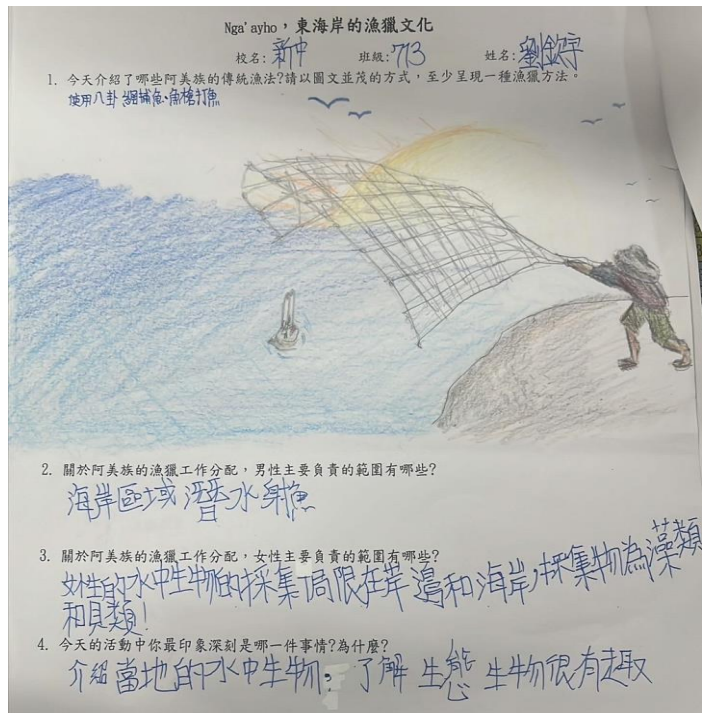 Nga'ayho，東海岸的漁獵文化
校名:新中 班級:713 姓名:劉欽宇
1. 今天介紹了哪些阿美族的傳統漁法?請以圖文並茂的方式，至少呈現一種漁獵方法。
使用八卦網捕魚、魚槍打魚
2. 關於阿美族的漁獵工作分配，男性主要負責的範圍有哪些?
海岸區域 潛水射魚
3. 關於阿美族的漁獵工作分配，女性主要負責的範圍有哪些?
女性的水中生物的採集侷限在岸邊和海岸,採集物為藻類
和貝類!
4. 今天的活動中你最印象深刻是哪一件事情?為什麼?
介紹當地的水中生物，了解生態生物很有趣